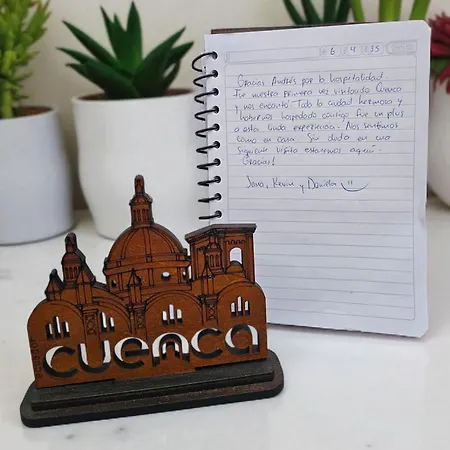 6 4 35
Gracias Andrés por la hospitalidad.
Fue nuestra primera vez visitando Cuenca
y nos encantó. Toda la ciudad hermosa y
habernos hospedado contigo fue un plus
a esta linda experiencia. Nos sentimos
como en casa. Sin duda en una
siguiente visita estaremos aquí.
Gracias!
Jana, Kevin y Daniela
cuenca